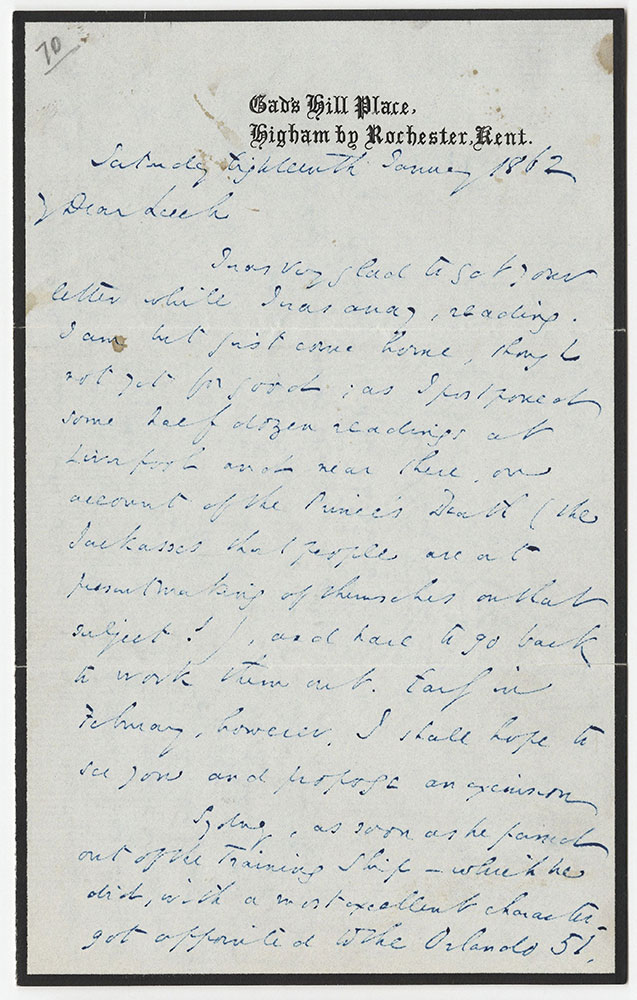 70
Gad's Hill Place,
Higham by Rochester, Kent.
Saturday Eighteenth January 1862
My Dear Leech
I was very glad to get your
letter while I was away, reading.
I am but just come home, though
not yet for good; as I postponed
some half dozen readings at
Liverpool and near there, on
account of the Prince's Death (the
Jackasses that people are at
present making of themselves on that
subject!), and have to go back
to work them out. Early in
February, however, I shall hope to
see you and propose an excursion
Sydney, as soon as he passed
out of the Training Ship – which he
did, with a most excellent character –
got appointed to the Orlando 51,